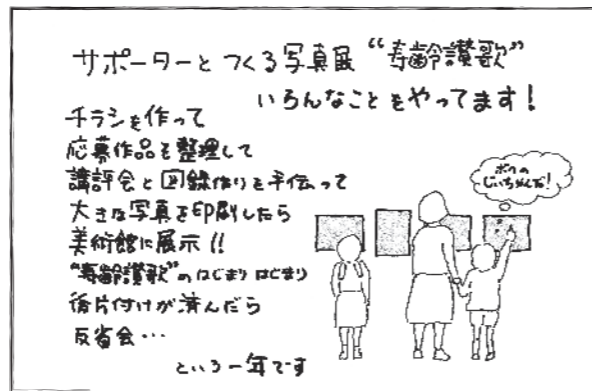 サポーターとつくる写真展 “寿齢讃歌”
いろんなことをやってます！
チラシを作って
応募作品を整理して
講評会と図録作りを手伝って
大きな写真を印刷したら
美術館に展示！！
“寿齢讃歌”のはじまりはじまり
後片付けが済んだら
反省会…
という一年です
ボクの
じいちゃんだ！